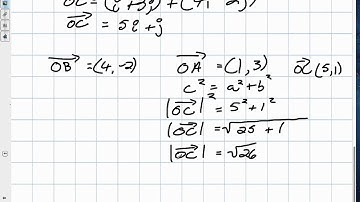 OC = (i + 3j) + (4i - 2j)
OC = 5i + j
OB = (4, -2) OA = (1, 3) OC (5, 1)
c² = a² + b²
|OC|² = 5² + 1²
|OC| = √25 + 1
|OC| = √26